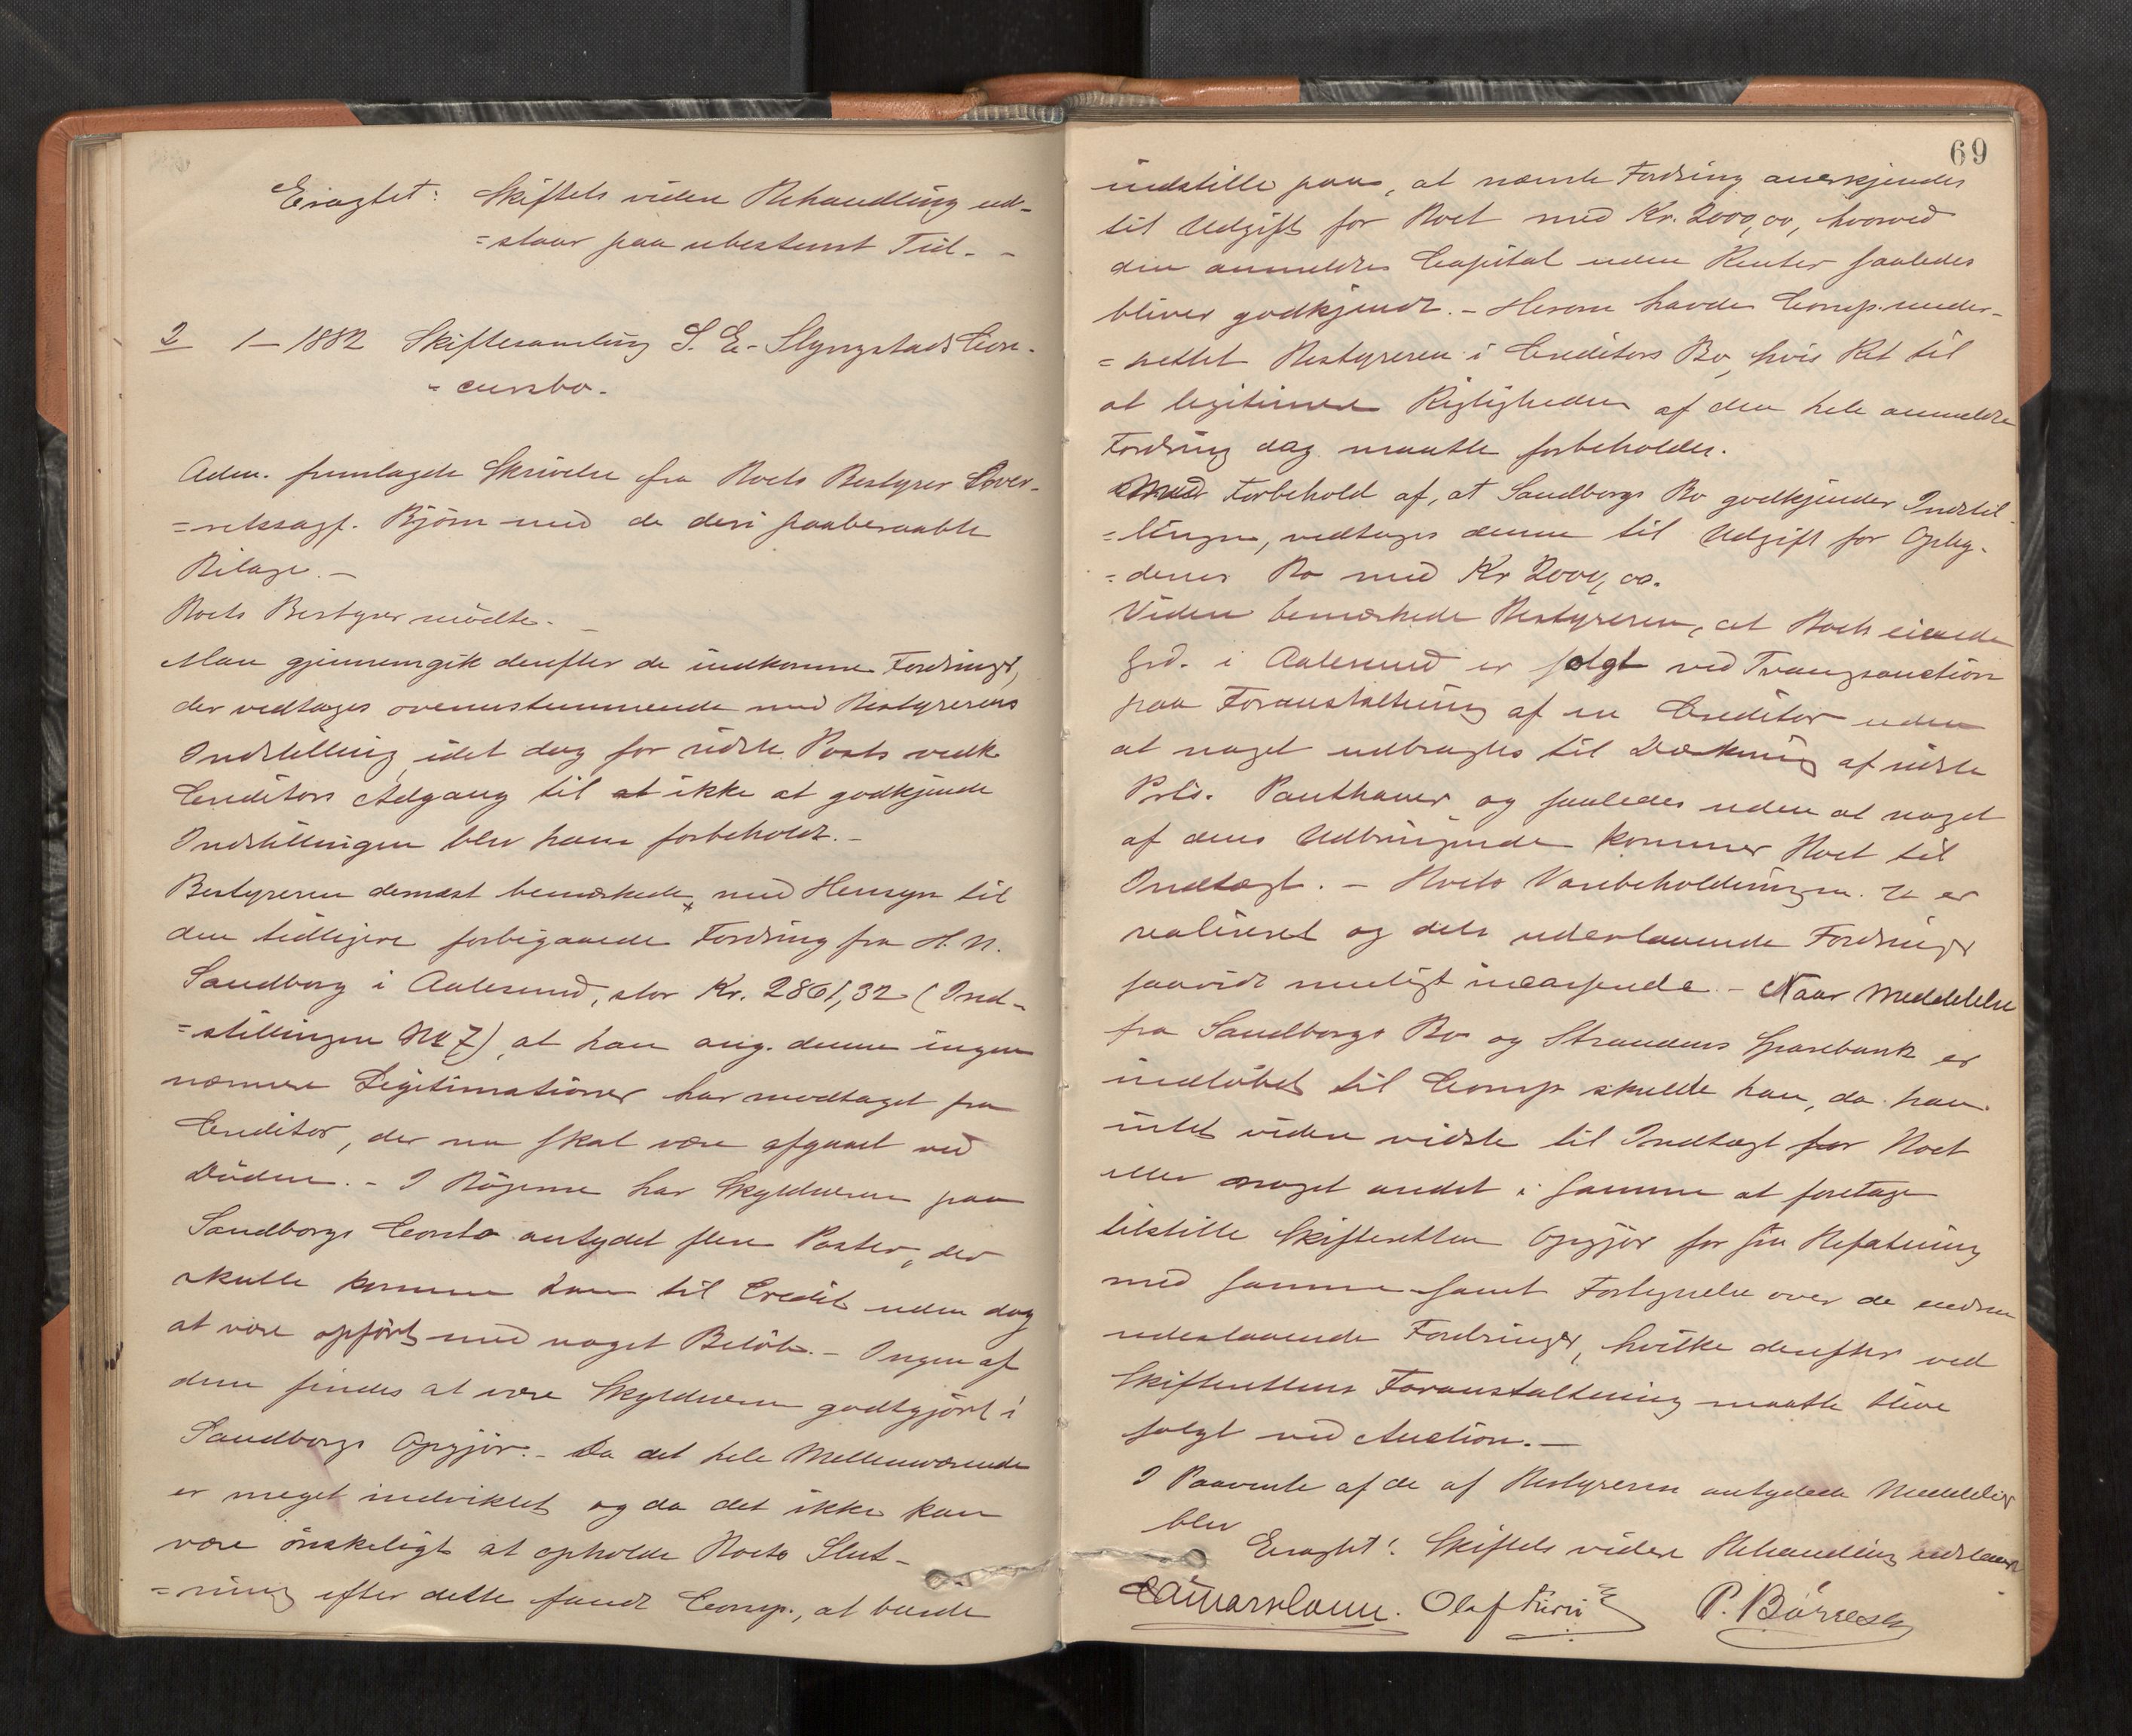 Eragtet: Skiftets videre Behandling ud-
=staar paa ubestemt Tid. -
2 1 - 1882 Skiftesamling S. E. Slyngstads Con-
=cursbo.
Adm. fremlagde Skrivelse fra Boets Bestyrer Over-
=retssagf. Bjørn med de deri paaberaabte
Bilage. -
Boets Bestyrer mødte. -
Man gjennemgik derefter de indkomne Fordringer,
der vedtages overensstemmende med Bestyrerens
Indstilling, idet dog for sidste Posts vedk.
Creditors Adgang til at ikke at godkjende
Indstillingen blev ham forbeholdt. -
Bestyreren dernæst bemærkede, med Hensyn til
den tidligere forbigaaede Fordring fra H. N.
Sandborg i Aalesund, stor Kr. 2861,32 (Ind-
=stillingen No 7), at han ang. denne ingen
nærmere Legitimationer har modtaget fra
Creditor, der nu skal være afgaaet ved
Døden. - I Bøgerne har Skyldneren paa
Sandborgs Conto antydet flere Poster, der
skulle komme ham til Credit uden dog
at være opført med noget Beløb. - Ingen af
dem findes at være Skyldneren godtgjørt i
Sandborgs Opgjør. - Da det hele Mellemværende
er meget indviklet og da det ikke kan
være ønskeligt at opholde Boets Slut-
=ning efter dette fandt Comp., at burde
69
indstille paa, at nævnte Fordring anerkjendes
til Udgift for Boet med Kr. 2000,00, hvorved
den anmeldte Capital uden Renter saaledes
bliver godkjendt. - Herom havde Comp. under-
=rettet Bestyreren i Creditors Bo, hvis Ret til
at legitimere Rigtigheden af den hele anmeldte
Fordring dog maatte forbeholdes.
Med Forbehold af, at Sandborgs Bo godkjender Indstil-
=lingen, vedtages denne til Udgift for Opby-
=derens Bo med Kr 2000,00.
Videre bemærkede Bestyreren, at Boets eiende
Grd. i Aalesund er solgt ved Tvangsauction
paa Foranstaltning af en Creditor uden
at noget udbragtes til Dækning af sidste
Prts. Panthaver og saaledes uden at noget
af dens Udbringende kommer Boet til
Indtægt. - Boets Varebeholdningen er
realiseret og dets udestaaende Fordringer
saavidt muligt incasserede. - Naar Meddelelse
fra Sandborgs Bo og Strandens Sparebank er
indløbet til Comp. skulde han, da han
intet videre vidste til Indtægt for Boet
eller noget andet i samme at foretage
tilstille Skifteretten Opgjør for sin Befatning
med samme samt Fortegnelse over de endnu
udestaaende Fordringer, hvilke derefter ved
Skifterettens Foranstaltning maatte blive
solgt ved Auction. -
I Paavente af de af Bestyreren antydede Meddelelser
blev
Eragtet: Skiftets videre Behandling udstaar
Olaf P. Børresen